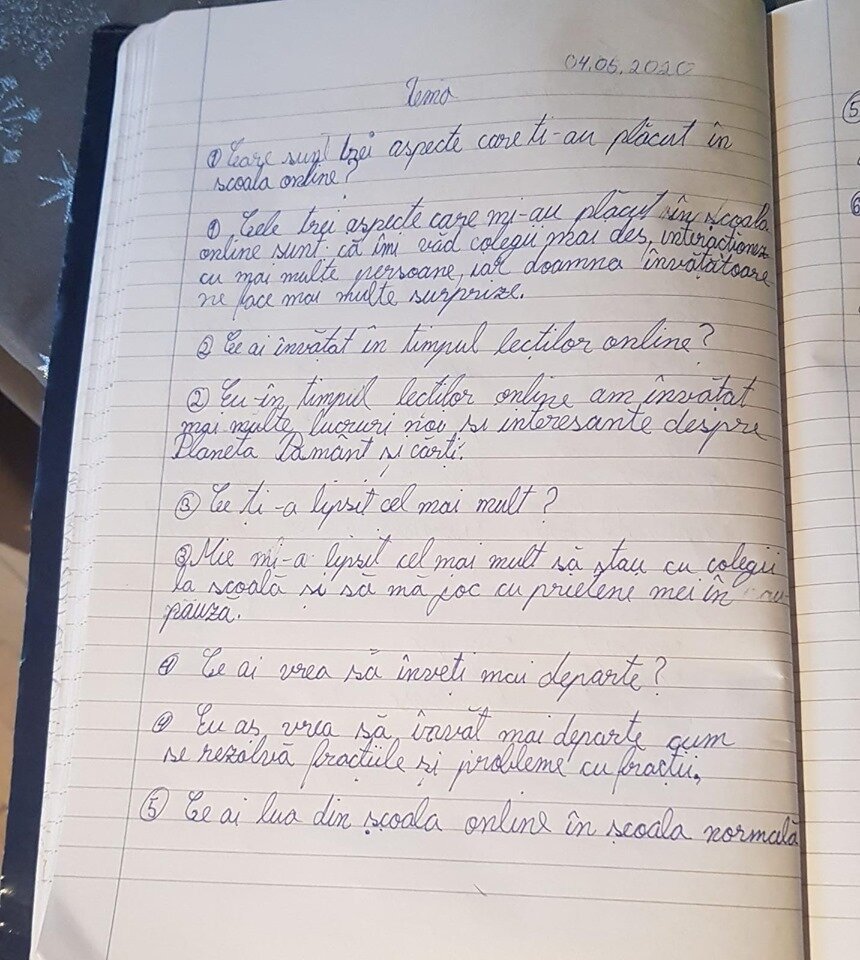 04.05.2020
Tema
① Care sunt trei aspecte care ti-au plăcut în
scoala online?
① Cele trei aspecte care mi-au plăcut în școala
online sunt: că îmi văd colegii mai des, interacționez
cu mai multe persoane, iar doamna învățătoare
ne face mai multe surprize.
② Ce ai învătat în timpul lecțiilor online?
② Eu în timpul lecțiilor online am învătat
mai multe lucruri noi și interesante despre
Planeta Pământ și cărti.
③ Ce ți-a lipsit cel mai mult?
③ Mie mi-a lipsit cel mai mult să stau cu colegii
la școală și să mă joc cu prietene mei în
pauza.
④ Ce ai vrea să înveti mai departe?
④ Eu aș vrea să învăt mai departe cum
se rezolvă fracțiile și probleme cu fracții.
⑤ Ce ai lua din școala online în școala normală
5
6